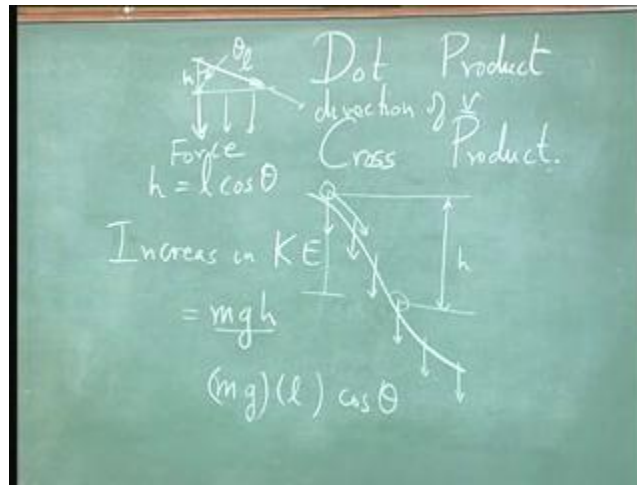 θ l
h
Dot Product
direction of v
Force
Cross Product.
h = l cos θ
h
Increas in KE
= mgh
(mg)(l) cos θ